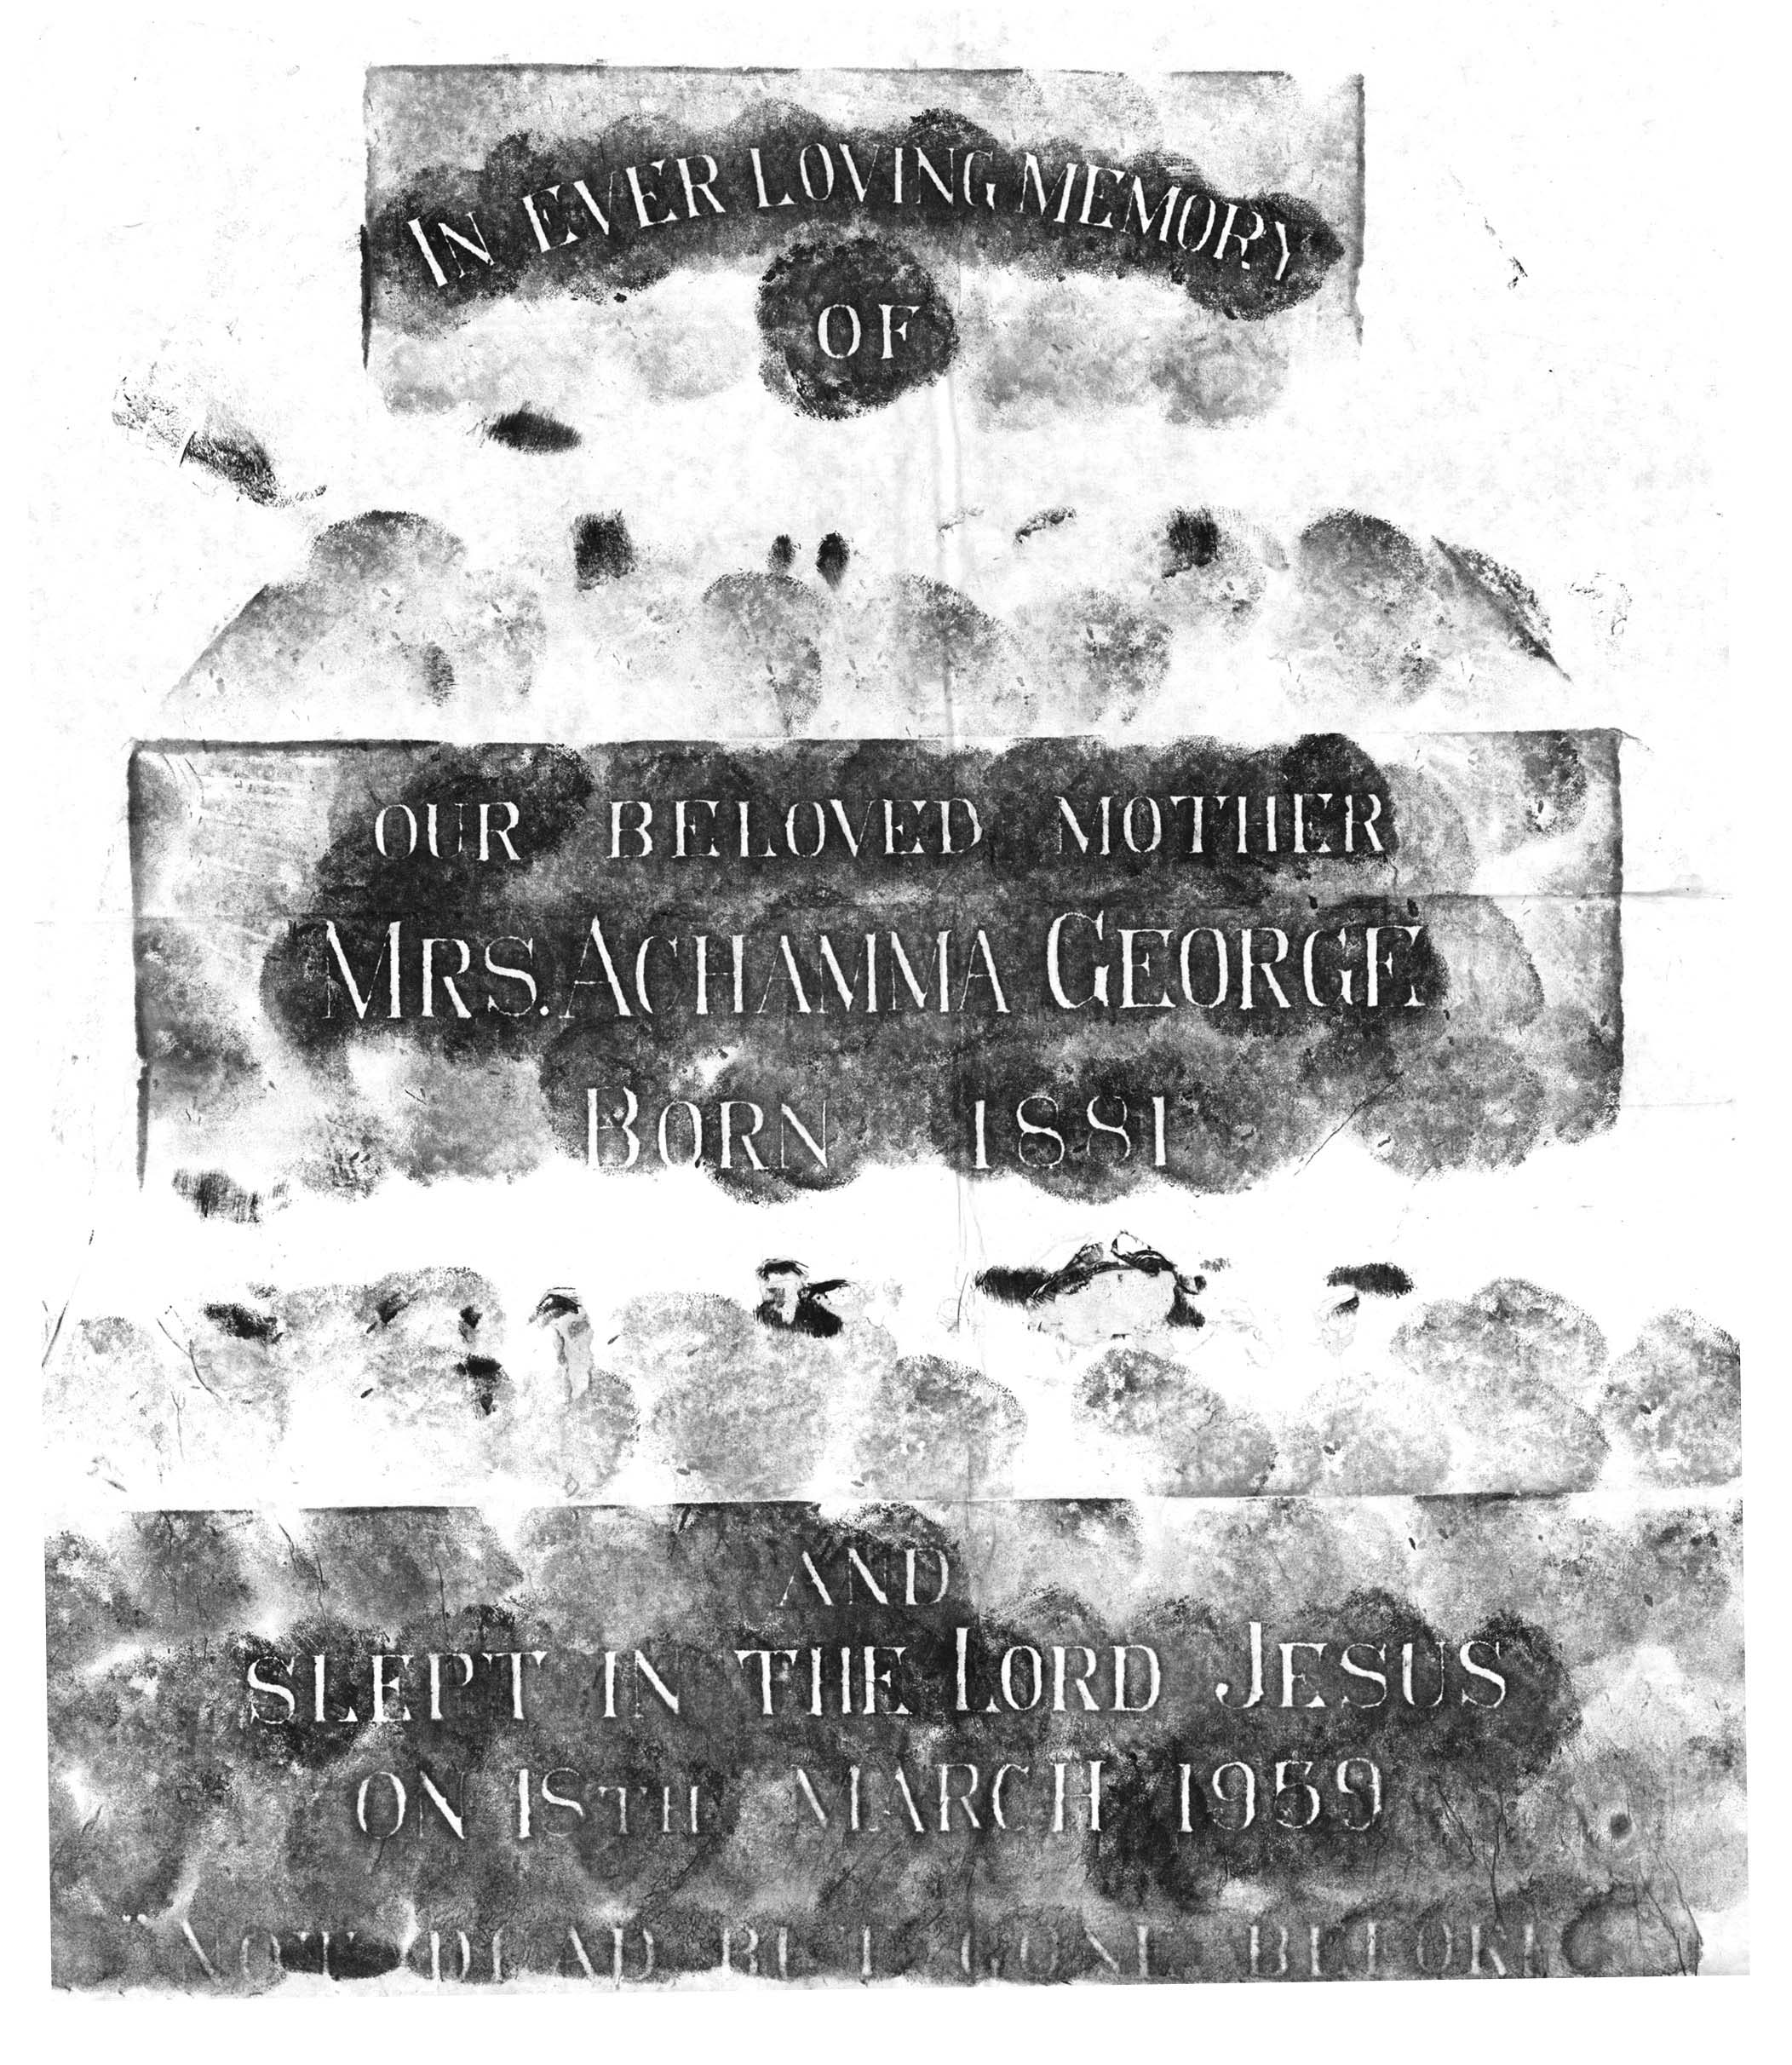 IN EVER LOVING MEMORY
OF
OUR BELOVED MOTHER
MRS. ACHAMMA GEORGE
BORN 1881
AND
SLEPT IN THE LORD JESUS
ON 15TH MARCH 1959
NOT DEAD BUT GONE BEFORE